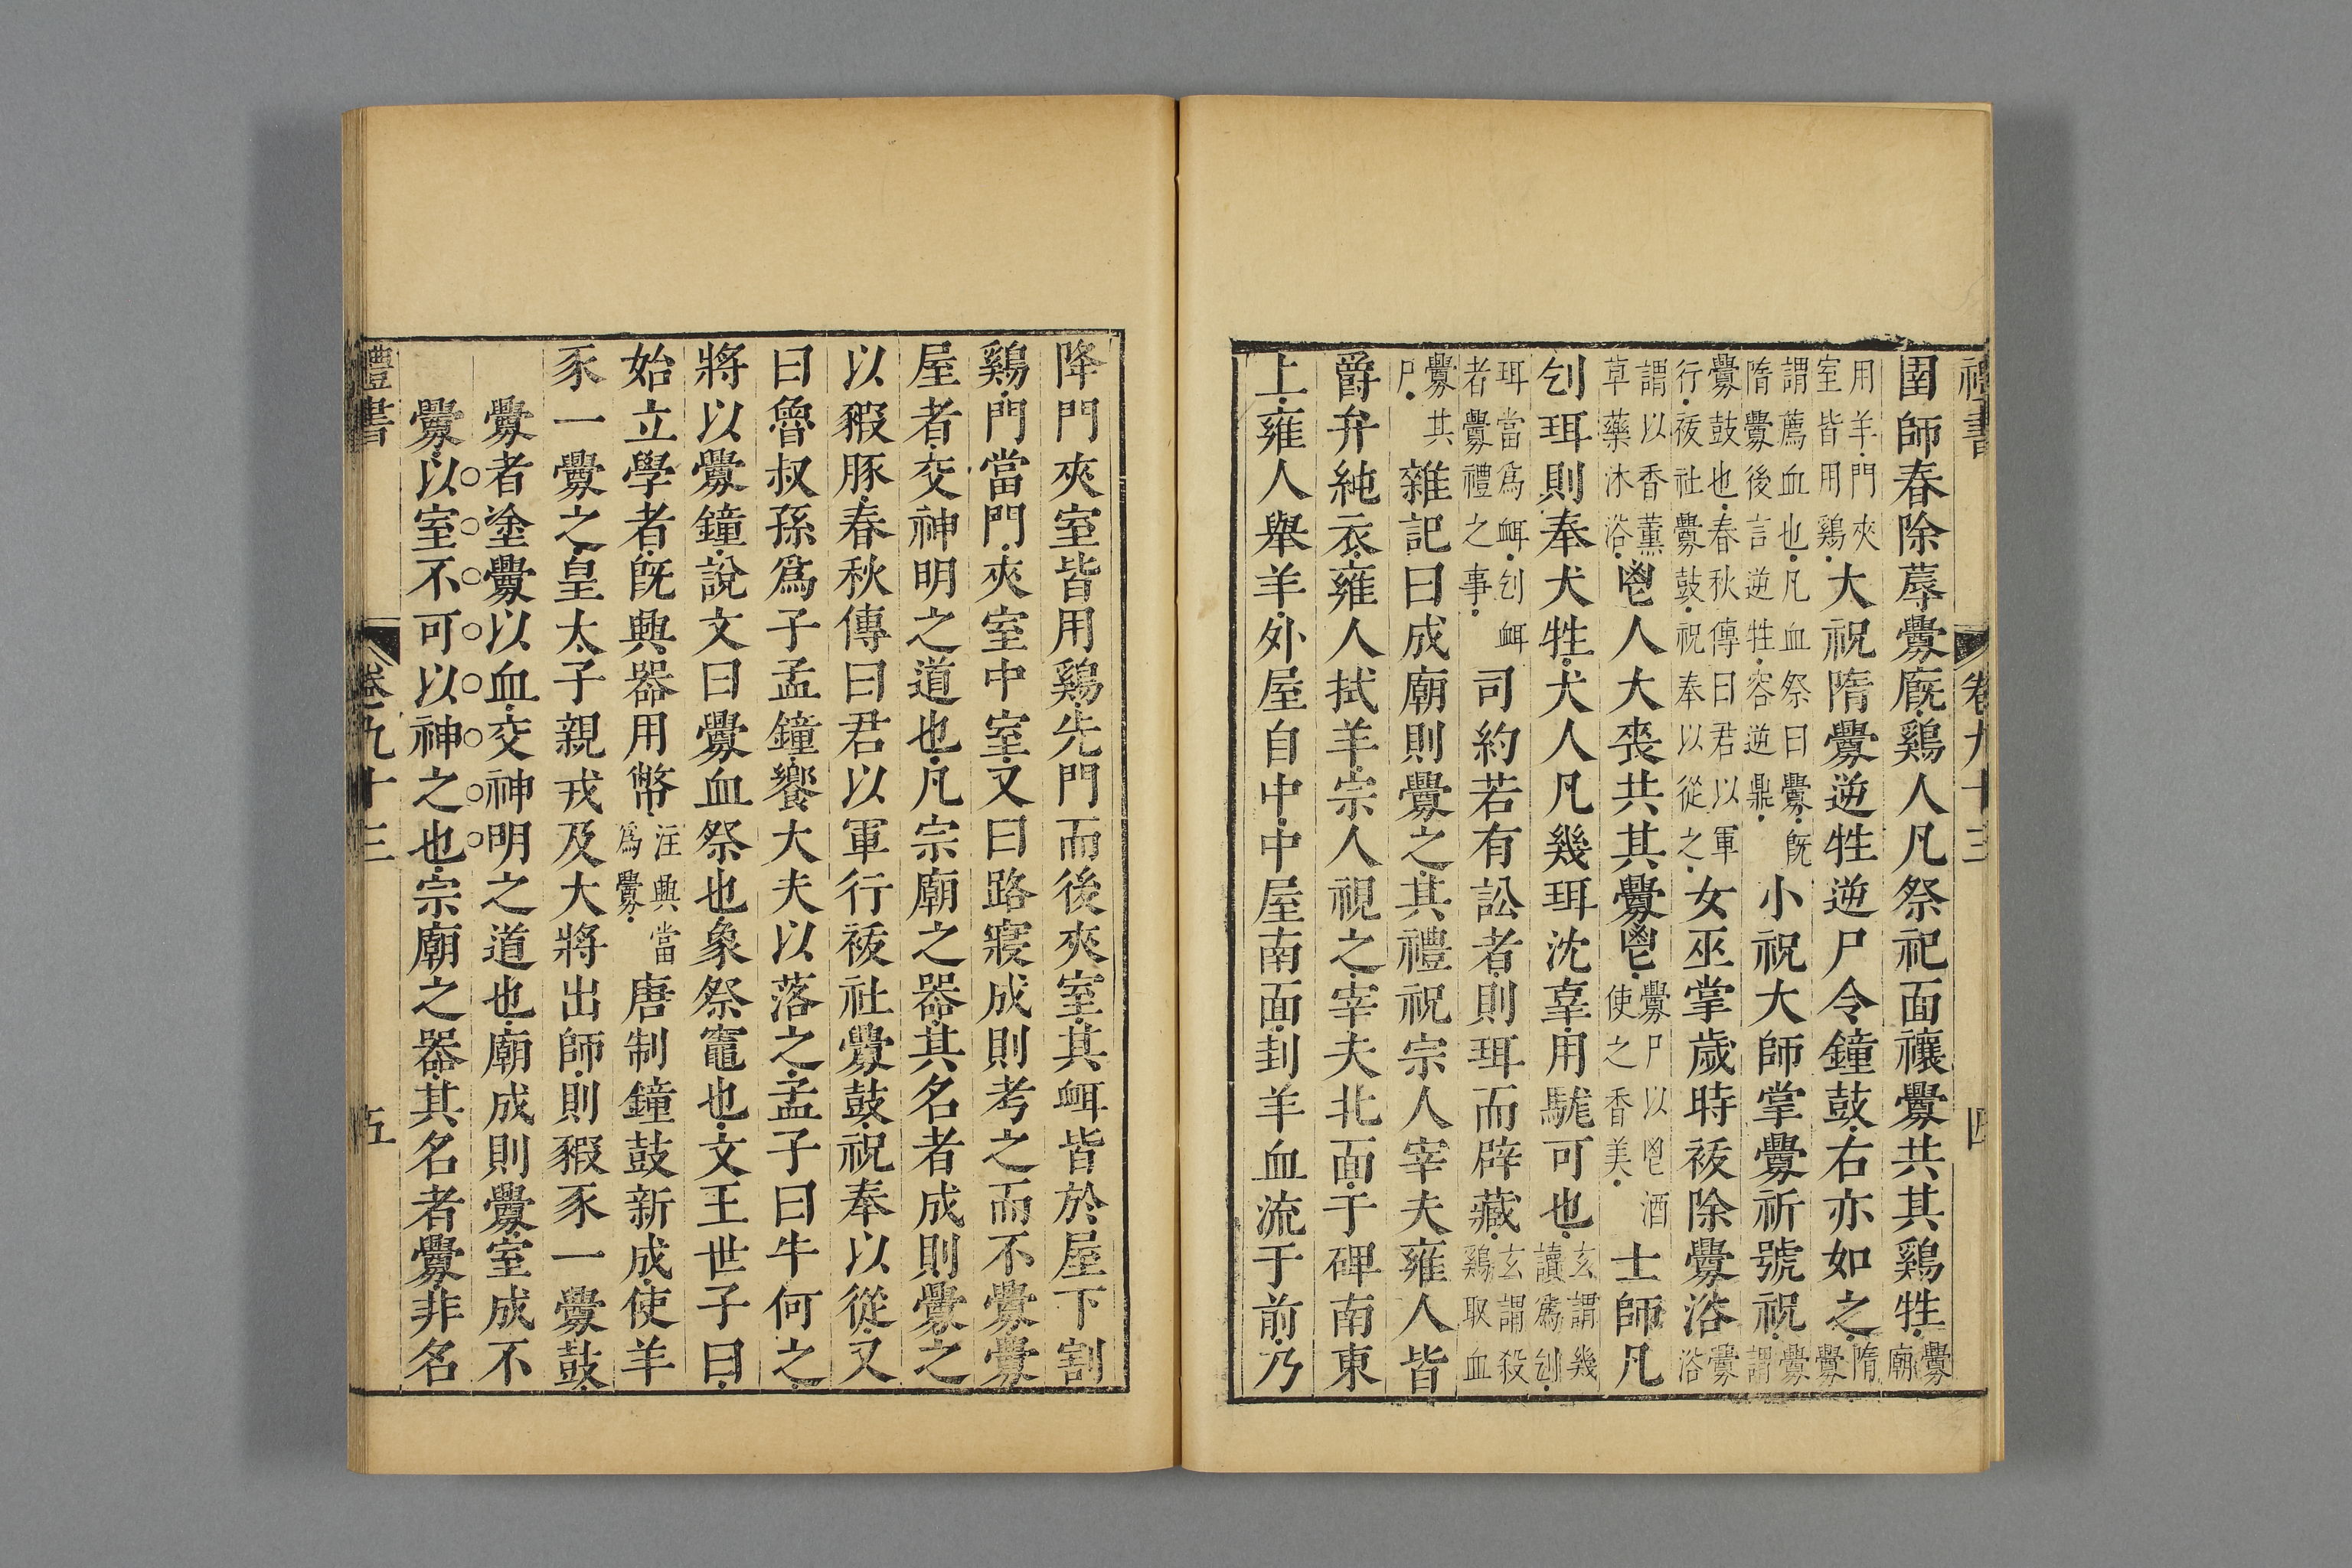 禮書
卷九十三
四
圉師春除蓐釁廄鷄人凡祭祀面禳釁共其鷄牲釁廟
用羊門夾室皆用鷄大祝隋釁逆牲逆尸令鐘鼓右亦如之隋釁
謂薦血也凡血祭曰釁旣隋釁後言逆牲容逆鼎小祝大師掌釁祈號祝釁謂
釁鼓也春秋傳曰君以軍行祓社釁鼓祝奉以從之女巫掌歲時祓除釁浴釁浴
謂以香薰草藥沐浴鬯人大喪共其釁鬯釁尸以鬯酒使之香美士師凡
刉珥則奉犬牲犬人凡幾珥沈辜用駹可也玄謂幾讀爲刉
珥當爲衈刉衈者釁禮之事司約若有訟者則珥而辟藏玄謂殺鷄取血
釁其尸雜記曰成廟則釁之其禮祝宗人宰夫雍人皆
爵弁純衣雍人拭羊宗人視之宰夫北面于碑南東
上雍人舉羊外屋自中中屋南面刲羊血流于前乃
降門夾室皆用鷄先門而後夾室其衈皆於屋下割
鷄門當門夾室中室又曰路寢成則考之而不釁釁
屋者交神明之道也凡宗廟之器其名者成則釁之
以豭豚春秋傳曰君以軍行祓社釁鼓祝奉以從又
曰魯叔孫爲子孟鐘饗大夫以落之孟子曰牛何之
將以釁鐘說文曰釁血祭也象祭竈也文王世子曰
始立學者旣興器用幣注興當爲釁唐制鐘鼓新成使羊
豕一釁之皇太子親戎及大將出師則豭豕一釁鼓
釁者塗釁以血交神明之道也廟成則釁室成不
釁以室不可以神之也宗廟之器其名者釁非名
禮書
卷九十三
五